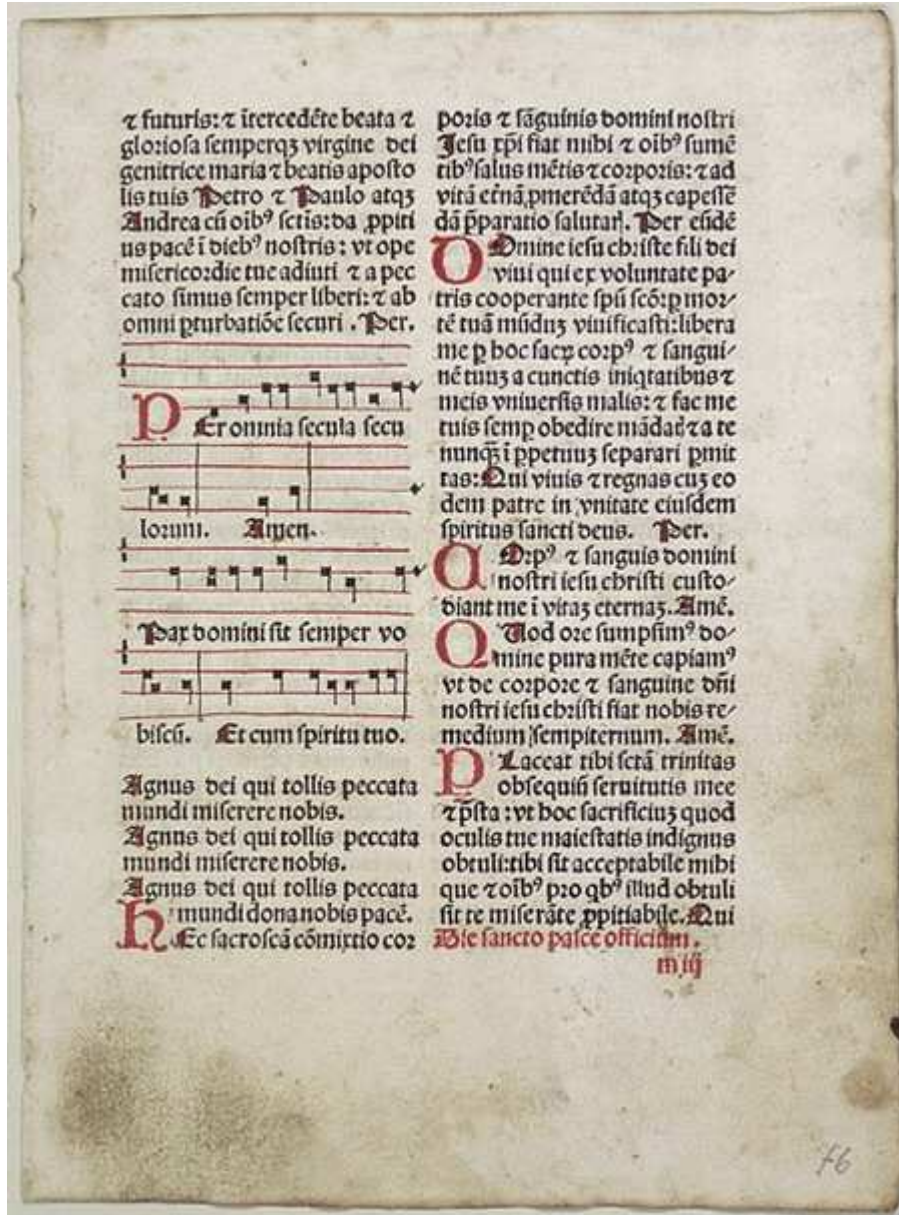 ⁊ futuris: ⁊ ĩtercedẽte beata ⁊
gloriosa semperqꝫ virgine dei
genitrice maria ⁊ beatis aposto
lis tuis Petro ⁊ Paulo atqꝫ
Andrea cũ oĩbꝰ sctĩs: da ꝓpiti
us pacẽ ĩ diebꝰ nostris: vt ope
misericordie tue adiuti ⁊ a pec
cato simus semper liberi: ⁊ ab
omni ꝑturbatiõe securi. Per.
PEr omnia secula secu
lorum. Amen.
Pax domini sit semper vo
biscũ. Et cum spiritu tuo.
Agnus dei qui tollis peccata
mundi miserere nobis.
Agnus dei qui tollis peccata
mundi miserere nobis.
Agnus dei qui tollis peccata
mundi dona nobis pacẽ.
HEc sacroscã cõmixtio cor
poris ⁊ sãguinis domini nostri
Jesu xp̃i fiat mihi ⁊ oĩbꝰ sumẽ
tibꝰ salus mẽtis ⁊ corporis: ⁊ ad
vitã et̃nã ꝓmerẽdã atqꝫ capessẽ
dã p̃paratio salutarꝭ. Per eũdẽ
DOmine iesu christe fili dei
viui qui ex voluntate pa-
tris cooperante spũ scõ: ꝑ mor-
tẽ tuã mũdũꝫ viuificasti: libera
me ꝑ hoc sacꝝ corpꝰ ⁊ sangui-
nẽ tuuꝫ a cunctis iniqtatibus ⁊
meis vniuersis malis: ⁊ fac me
tuis semꝑ obedire mãdatꝭ ⁊ a te
nunq̃ꝫ ĩ ꝑpetuuꝫ separari ꝑmit
tas: Qui viuis ⁊ regnas cuꝫ eo
dem patre in vnitate eiusdem
spiritus sancti deus. Per.
COrpꝰ ⁊ sanguis domini
nostri iesu christi custo-
diant me ĩ vitaꝫ eternaꝫ. Amẽ.
QUod ore sumpsimꝰ do-
mine pura mẽte capiamꝰ
vt de corpore ⁊ sanguine dñi
nostri iesu christi fiat nobis re-
medium sempiternum. Amẽ.
PLaceat tibi sctã trinitas
obsequiũ seruitutis mee
⁊ p̃sta: vt hoc sacrificiuꝫ quod
oculis tue maiestatis indignus
obtuli: tibi sit acceptabile mihi
que ⁊ oĩbꝰ pro qbꝰ illud obtuli
sit te miserãte ꝓpitiabile. Qui
Die sancto pasce officium.
m iij
76